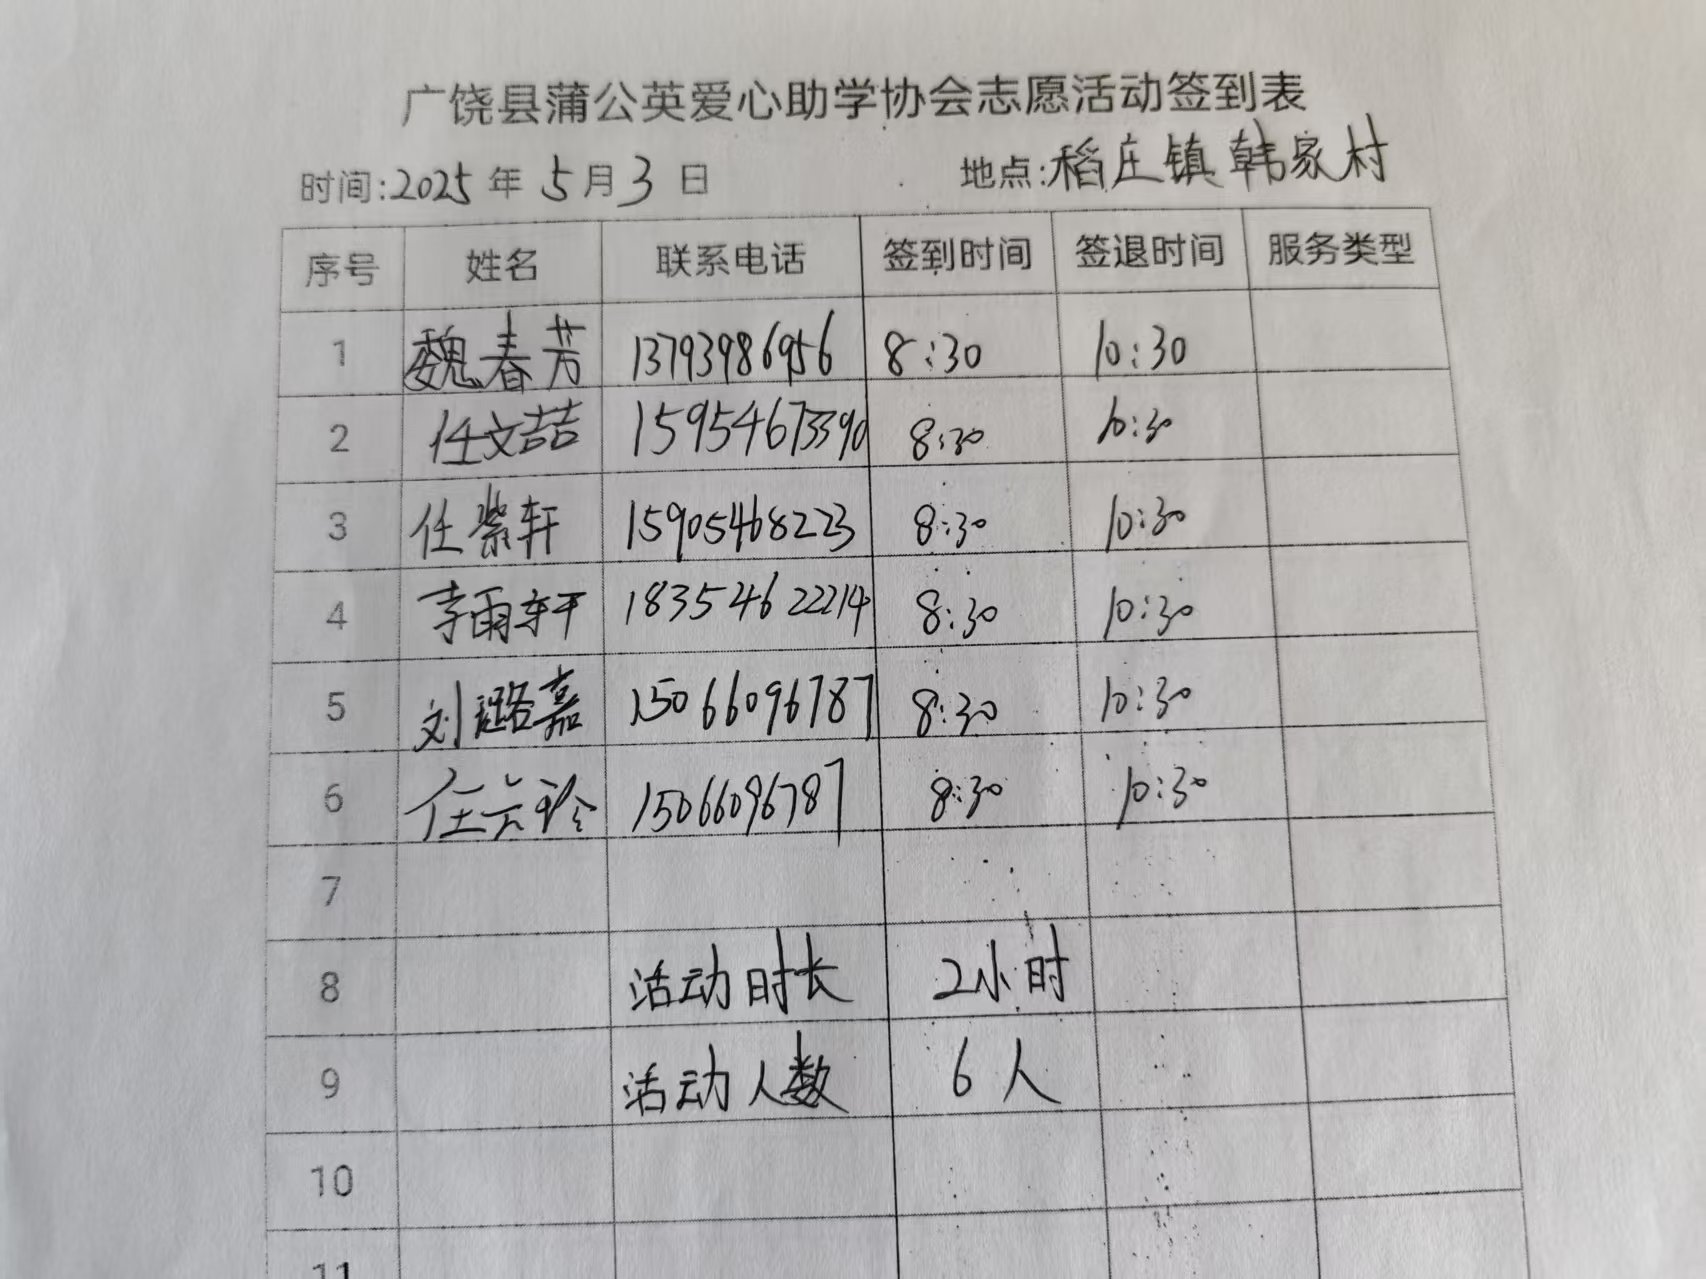 广饶县蒲公英爱心助学协会志愿活动签到表
时间:2025年5月3日 地点:稻庄镇韩家村
序号 姓名 联系电话 签到时间 签退时间 服务类型
1 魏春芳 13793986956 8:30 10:30
2 任文喆 15954673390 8:30 10:30
3 任紫轩 15905468223 8:30 10:30
4 李雨轩 18354622214 8:30 10:30
5 刘璐嘉 15066096787 8:30 10:30
6 任云玲 15066096787 8:30 10:30
7
8 活动时长 2小时
9 活动人数 6人
10
11